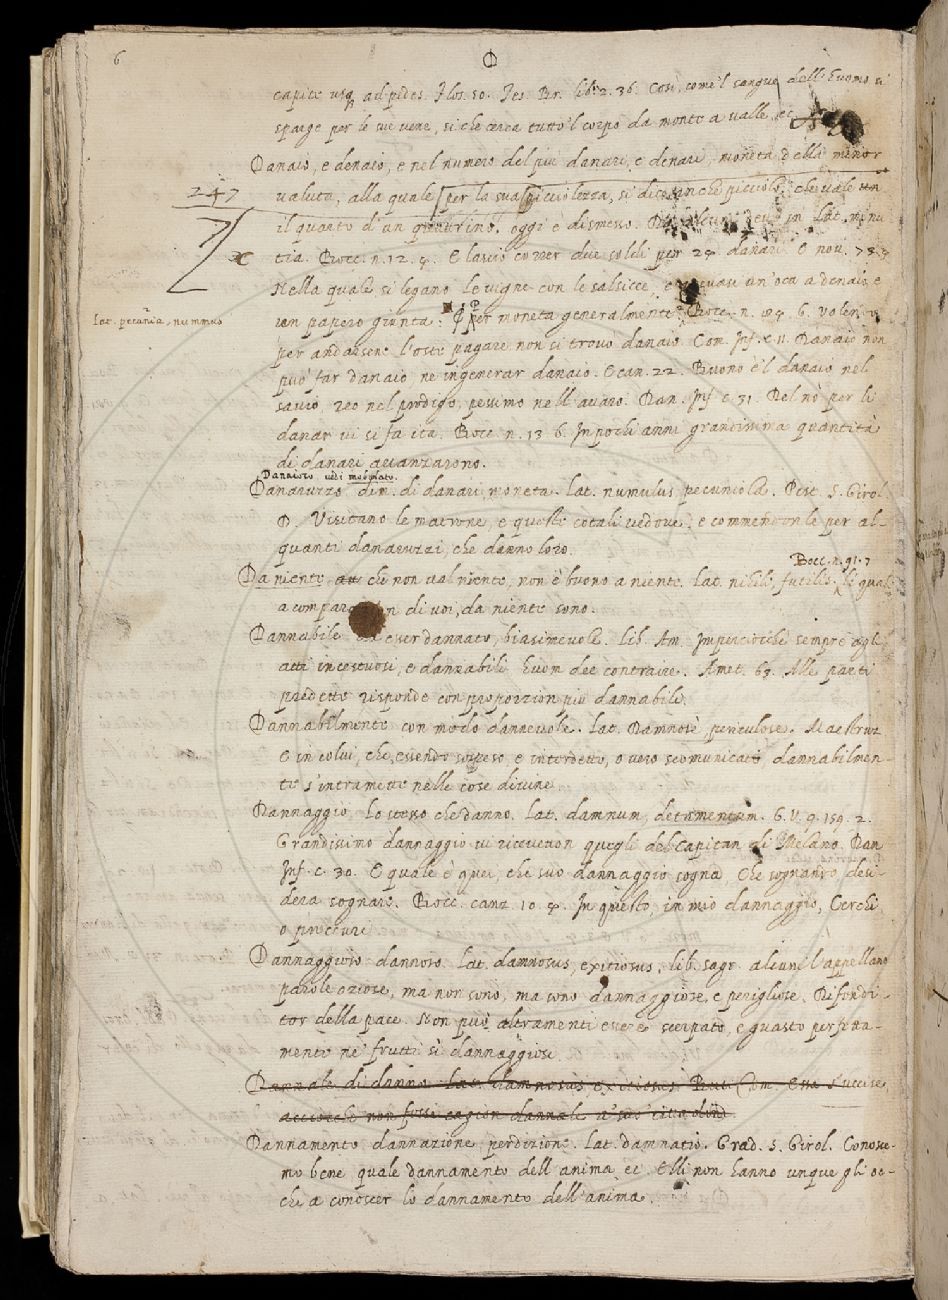 6
D
capite usq ad pedes. Flos. 50. Tes. Br. lib. 2. 36. Così, come'l sangue dell'huomo si
sparge per le sue vene, si che cerca tutto'l corpo da monte a valle, et
Danaio, e denaio, e nel numero del più danari, e denari, moneta della minor
247
valuta, alla quale per la sua picciolezza, si dice anche picciolo, che vale un
il quarto d'un quattrino. oggi è dismesso. in Lat. minu
tia. Bocc. n. 12. 4. E lascio correr due soldi per 24 danari. E nov. 73.
Nella quale si legano le vigne con le salsicce, e avevasi un'oca a denaio e
lat. pecunia, nummus
un papero giunta. per moneta generalmente. Bocc. n. 6. volen
per andarsene l'oste pagare non si trovo danaio. Com. Inf. c. 11. Danaio non
può far danaio, ne ingenerar danaio. E can. 22. Buono è'l danaio nel
savio, reo nel prodigo, pessimo nell'avaro. Dan. Inf. c. 31. Del nò per li
danar vi si fa ita. Bocc. n. 13. 6. In pochi anni grandissima quantità
di danari avanzarono.
Danaioso vedi
Danaruzzo dim. di danari, moneta. Lat. numulus pecuniola. Pist. S. Girol.
D. Visitano le matrone, e queste cotali vedove, e commendonle per al-
quanti danaruzzi, che danno loro.
Bocc. n. 91. 7
Da niente che non val niente, non è buono a niente. Lat. nihili, futilis. li qual
a comparazion di voi, da niente sono.
Dannabile da esser dannato, biasimevole. Lib. Am. Imperciocche sempre agli
atti incestuosi, e dannabili huom dee contraire. Amet. 63. Alle parti
predette risponde con proporzion più dannabile.
Dannabilmente con modo dannevole. Lat. Damnosè, periculose. Maestruz
E in colui, che, essendo sospeso, e interdetto, o vero scomunicato dannabilmen-
te s'intramette nelle cose divine.
Dannaggio, lo stesso che danno. Lat. damnum, detrimentum. G. V. 9. 159. 2.
Grandissimo dannaggio vi ricevenon quegli del Capitan di Melano. Dan
Inf. c. 30. E quale è quei, che suo dannaggio sogna, Che sognando, desi-
dera sognare. Bocc. canz. 10. 4. In questo, in mio dannaggio, Cerchi
o procuri
Dannaggioso dannoso. Lat. damnosus, exitiosus, lib. sagr. alcuni l'appellano
parole oziose, ma non sono, ma sono dannaggiose, e perigliose. Difendi-
tor della pace. Non può altramenti essere scerpato, e guasto perfetta-
mente ne' frutti sì dannaggiosi.
Dannale di danno. Lat. damnosus exitiosus. But. Com. Essa s'uccise
acciocche non fussi cagion dannale a' suo' cittadini.
Dannamento dannazione, perdizione. Lat. damnatio. Grad. S. Girol. Conosce-
mo bene quale dannamento dell'anima ec. Elli non hanno unque gli oc-
chi a conoscer lo dannamento dell'anima.